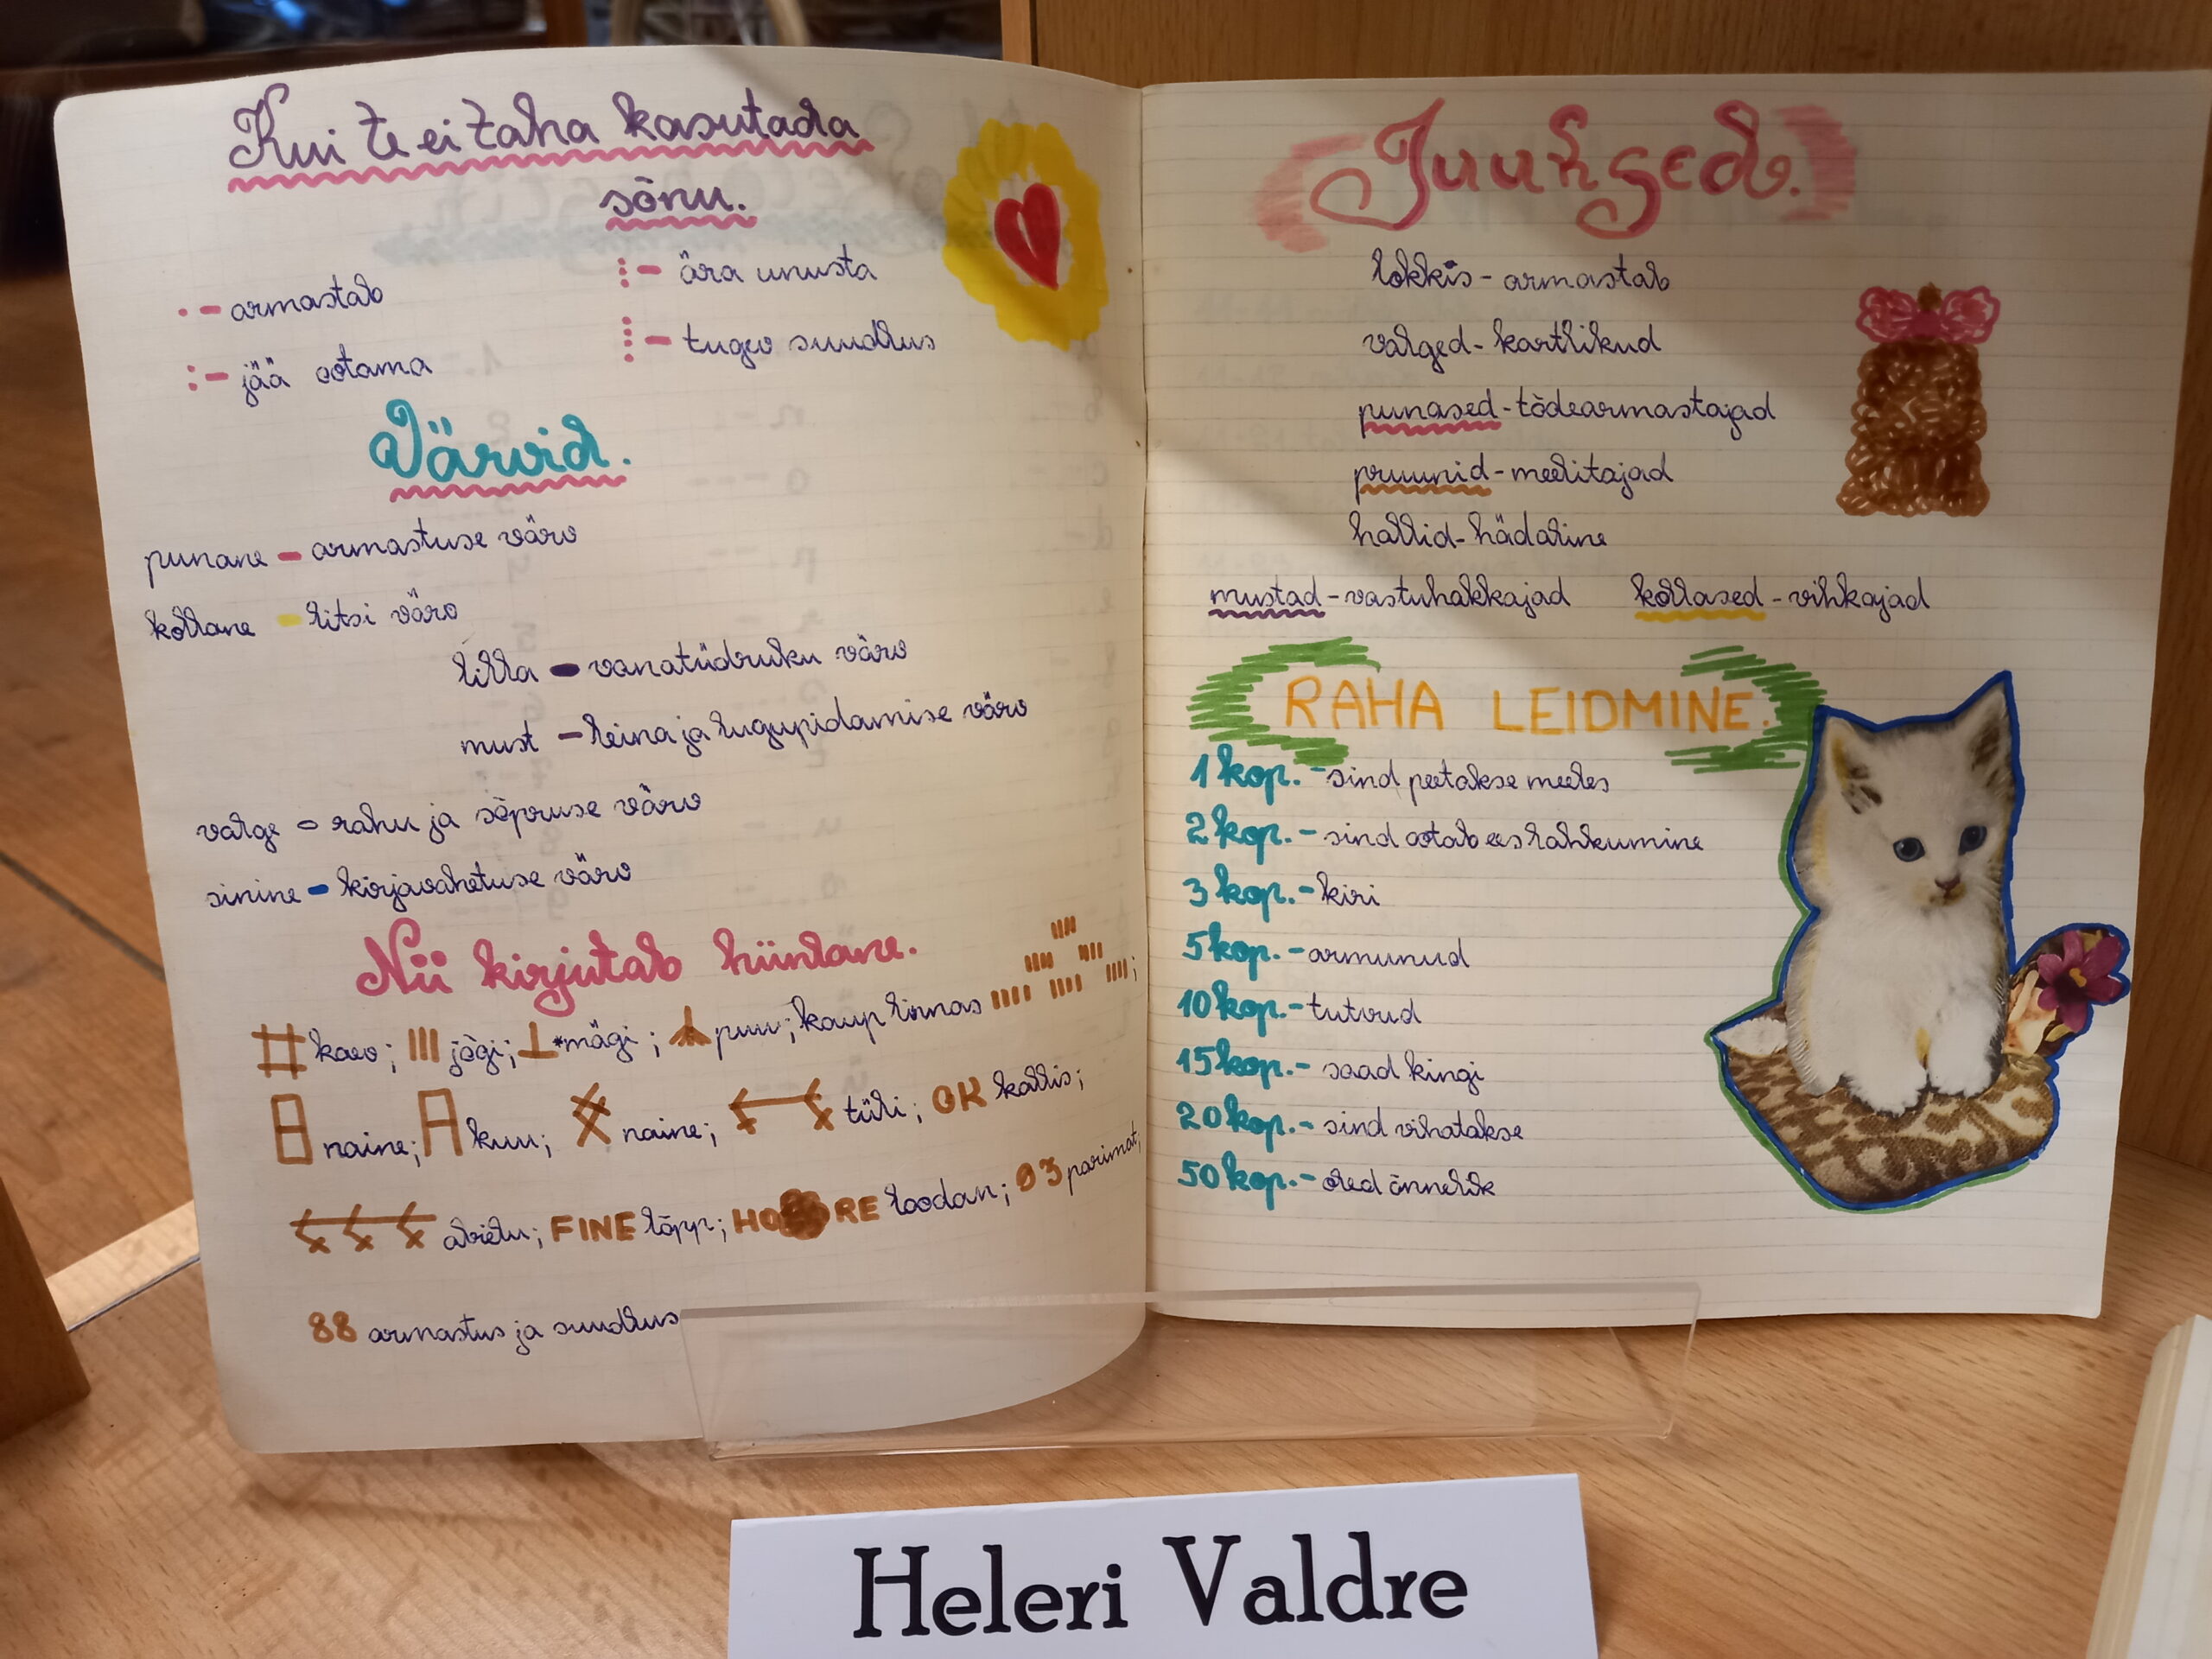 Kui te ei taha kasutada
sõnu.
· - armastab
: - jää ootama
⋮ - ära unusta
⁞ - tugev suudlus
Värvid.
punane - armastuse värv
kollane - litsi värv
lilla - vanatüdruku värv
must - leina ja lugupidamise värv
valge - rahu ja sõpruse värv
sinine - kirjavahetuse värv
Nii kirjutab hiinlane.
kaev; jõgi; mägi; puu; kaup linnas
naine; kuu; naine; tüli; OK kallis;
abielu; FINE lõpp; HO RE loodan; 03 parimat;
88 armastus ja suudlus
Juuksed.
lokkis - armastab
valged - kartlikud
punased - tõdearmastajad
pruunid - meelitajad
hallid - hädaline
mustad - vastuhakkajad kollased - vihkajad
RAHA LEIDMINE.
1 kop. - sind peetakse meeles
2 kop. - sind ootab ees lahkumine
3 kop. - kiri
5 kop. - armunud
10 kop. - tutvud
15 kop. - saad kingi
20 kop. - sind vihatakse
50 kop. - oled õnnelik
Heleri Valdre